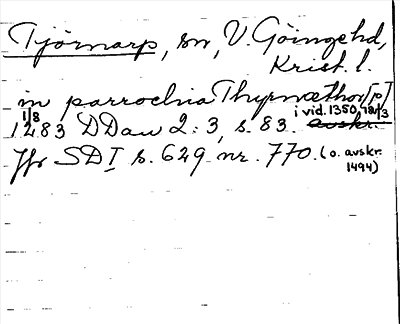 Tjörnarp, sn, V. Göingehd,
Krist. l.
in parrochia Thyrnæthor[p]
1/8 i vid. 1350 18/3
1283 DDan 2:3, s. 83. avskr.
Jfr SD I s. 629 nr. 770. (o. avskr.
1494)